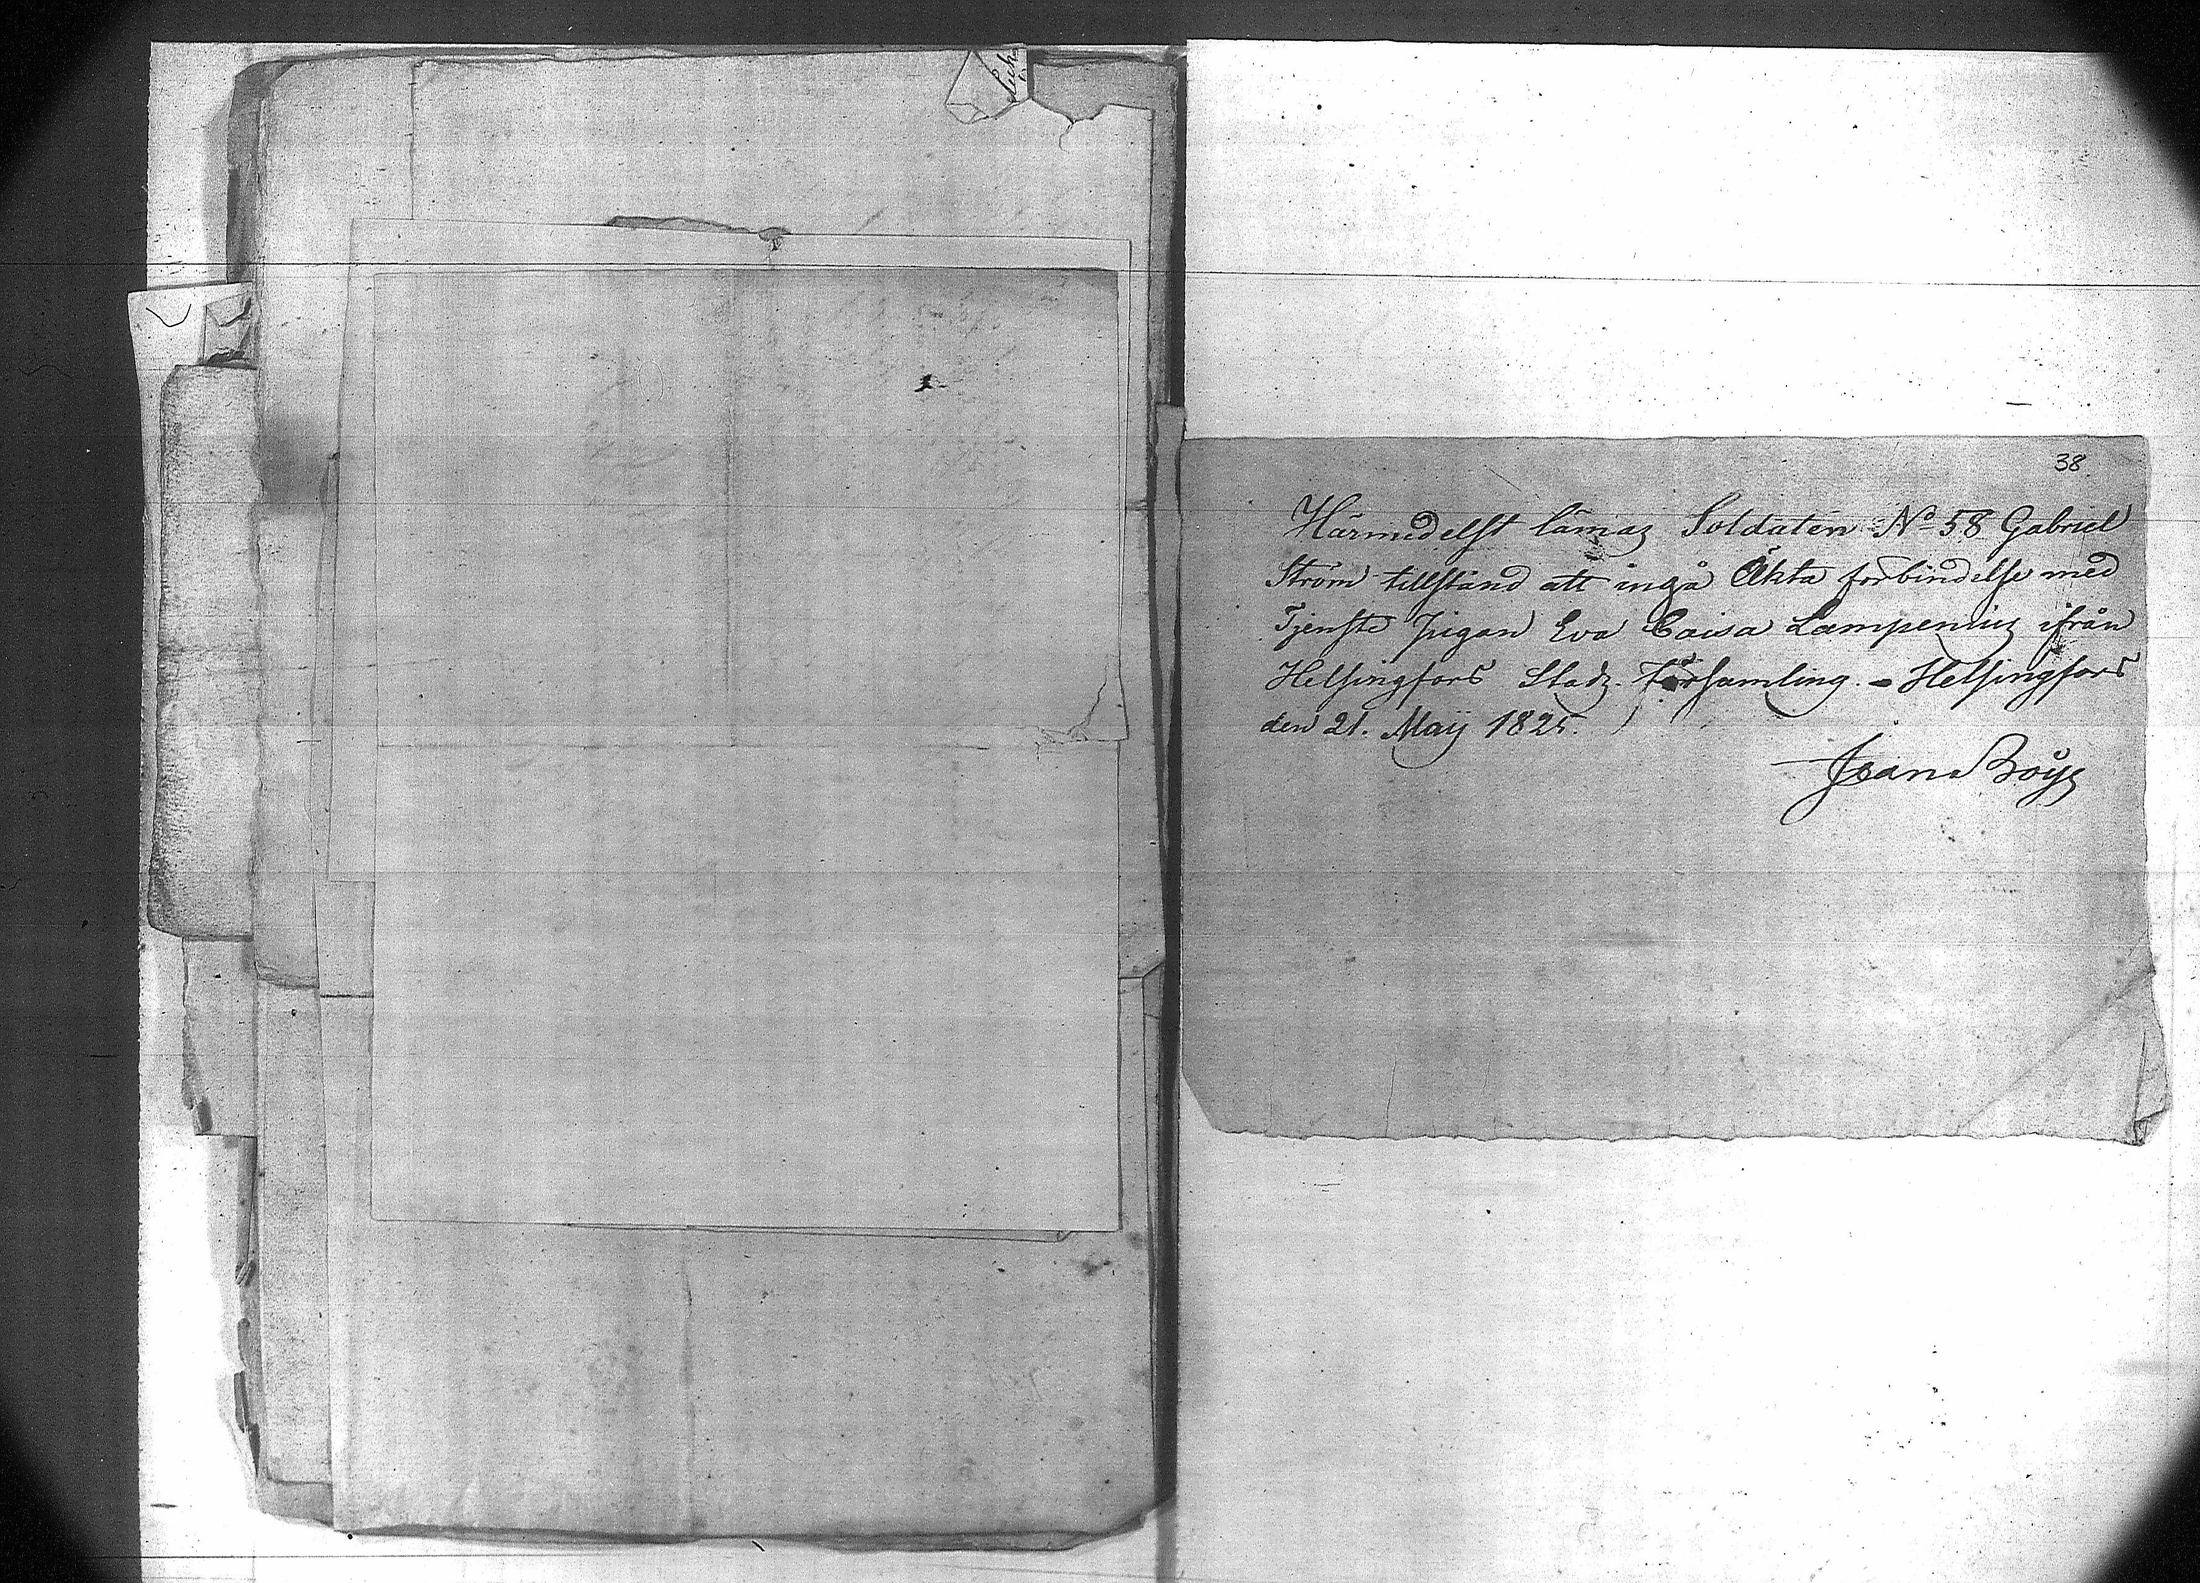 38.
Härmedelst lämnaz Soldaten No 58 Gabriel
Ström tillstånd att ingå Äkta förbindelse med
Tjenste Pigan Eva Caisa Lampenius ifrån
Helsingfors Stadz Församling. - Helsingfors
den 21. Maÿ 1825.
Jean